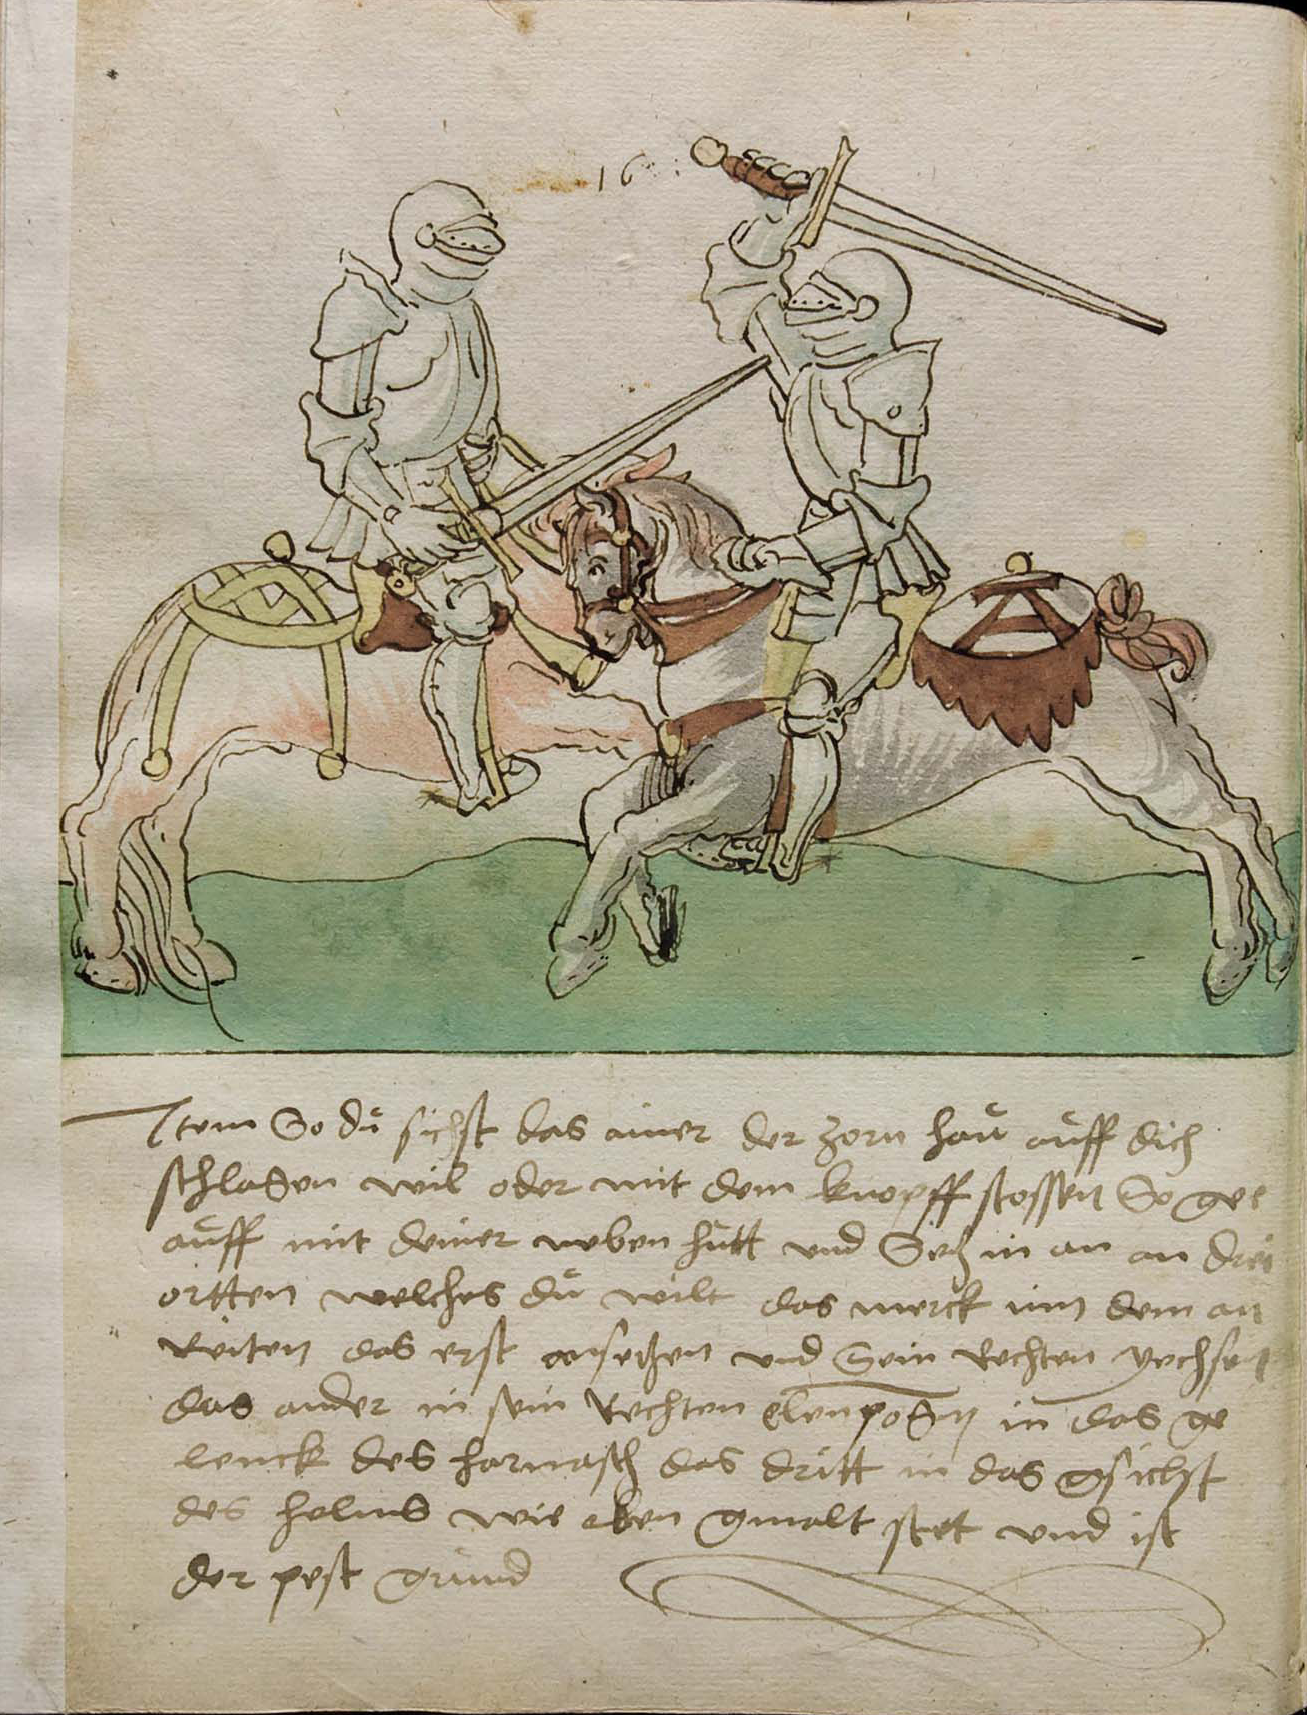 16 :
Item So du sichst das ainer der zorn hau auff dich
schlagen wil oder mit dem knopff stossen So gee
auff mit deiner neben hutt und Setz in an an drei
ortten welches du wilt das merck inn dem an
Reiten das erst ansetzen und Sein Rechten yechsen
das ander in sein Rechten elenpogen in das ge
lenck des harnasch das dritt in das gsichst
des helms wie oben gmalt stet und ist
der pest grund